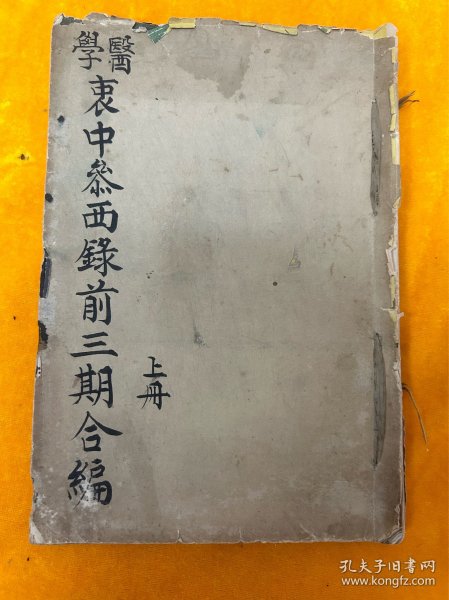 醫學衷中參西錄前三期合編
上冊
孔夫子旧书网
www.kongfz.com